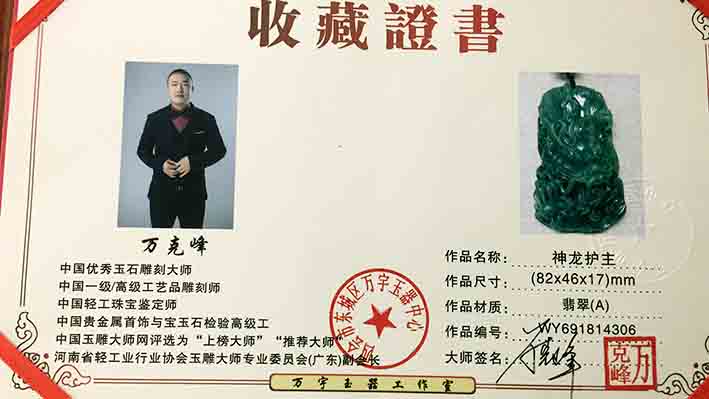 收藏證書
万克峰
中国优秀玉石雕刻大师
中国一级/高级工艺品雕刻师
中国轻工珠宝鉴定师
中国贵金属首饰与宝玉石检验高级工
中国玉雕大师网评选为“上榜大师”“推荐大师”
河南省轻工业行业协会玉雕大师专业委员会(广东)副会长
市东城区万宇玉器中心
作品名称: 神龙护主
作品尺寸: (82x46x17)mm
作品材质: 翡翠(A)
作品编号: WY691814306
大师签名:
万克峰
万宇玉器工作室